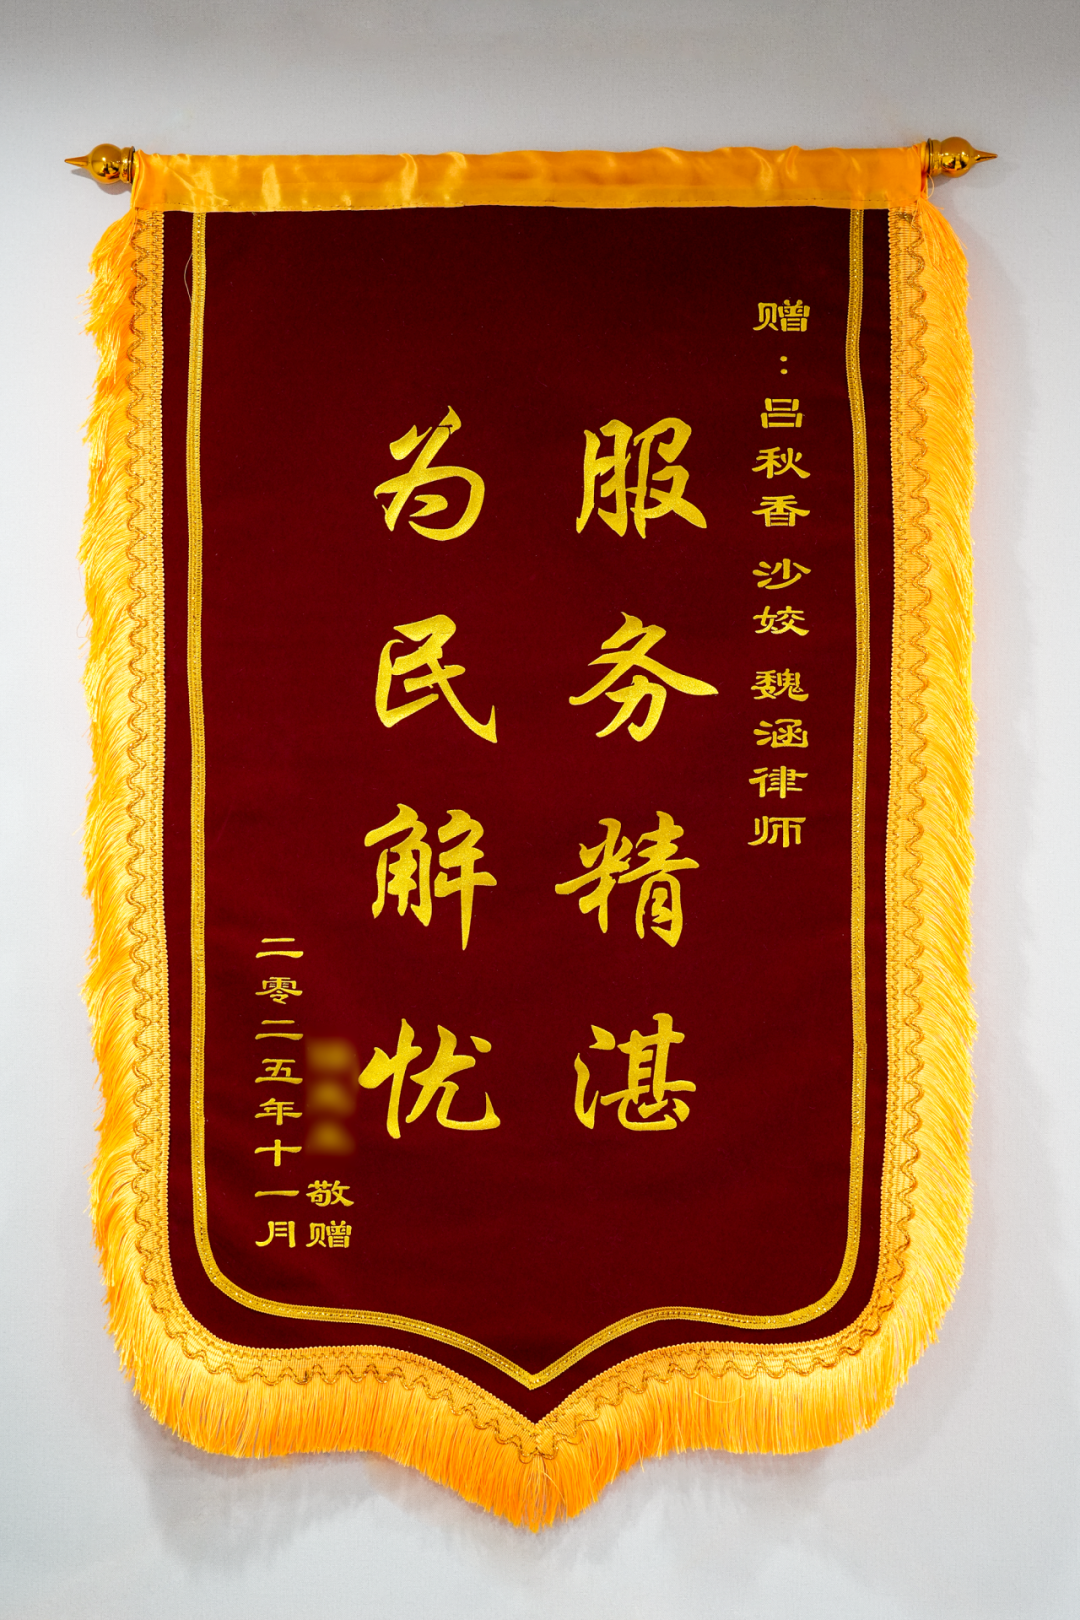 赠：吕秋香 沙姣 魏涵律师
服务精湛
为民解忧
敬赠
二零二五年十一月